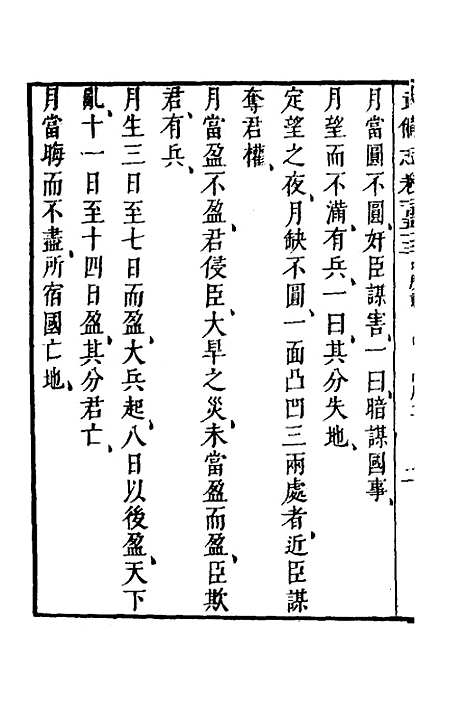 月當圓不圓奸臣謀害一曰暗謀國事
月望而不滿有兵一曰其分失地
定望之夜月缺不圓一面凸凹三兩處者近臣謀
奪君權
月當盈不盈君侵臣大旱之災未當盈而盈臣欺
君有兵
月生三日至七日而盈大兵起八日以後盈天下
亂十一日至十四日盈其分君亡
月當晦而不盡所宿國亡地